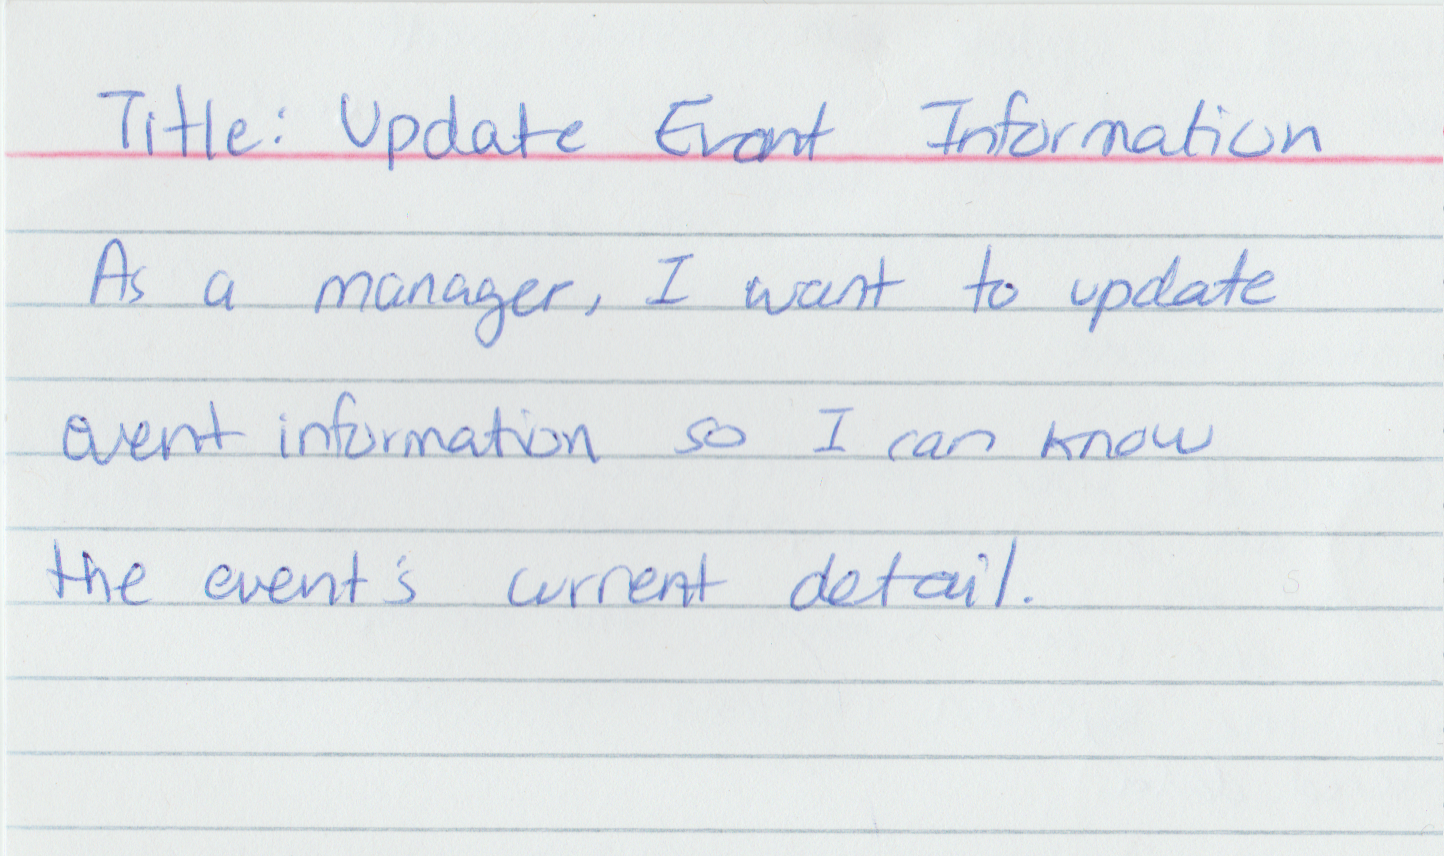 Title: Update Event Information
As a manager, I want to update
event information so I can know
the event's current detail.